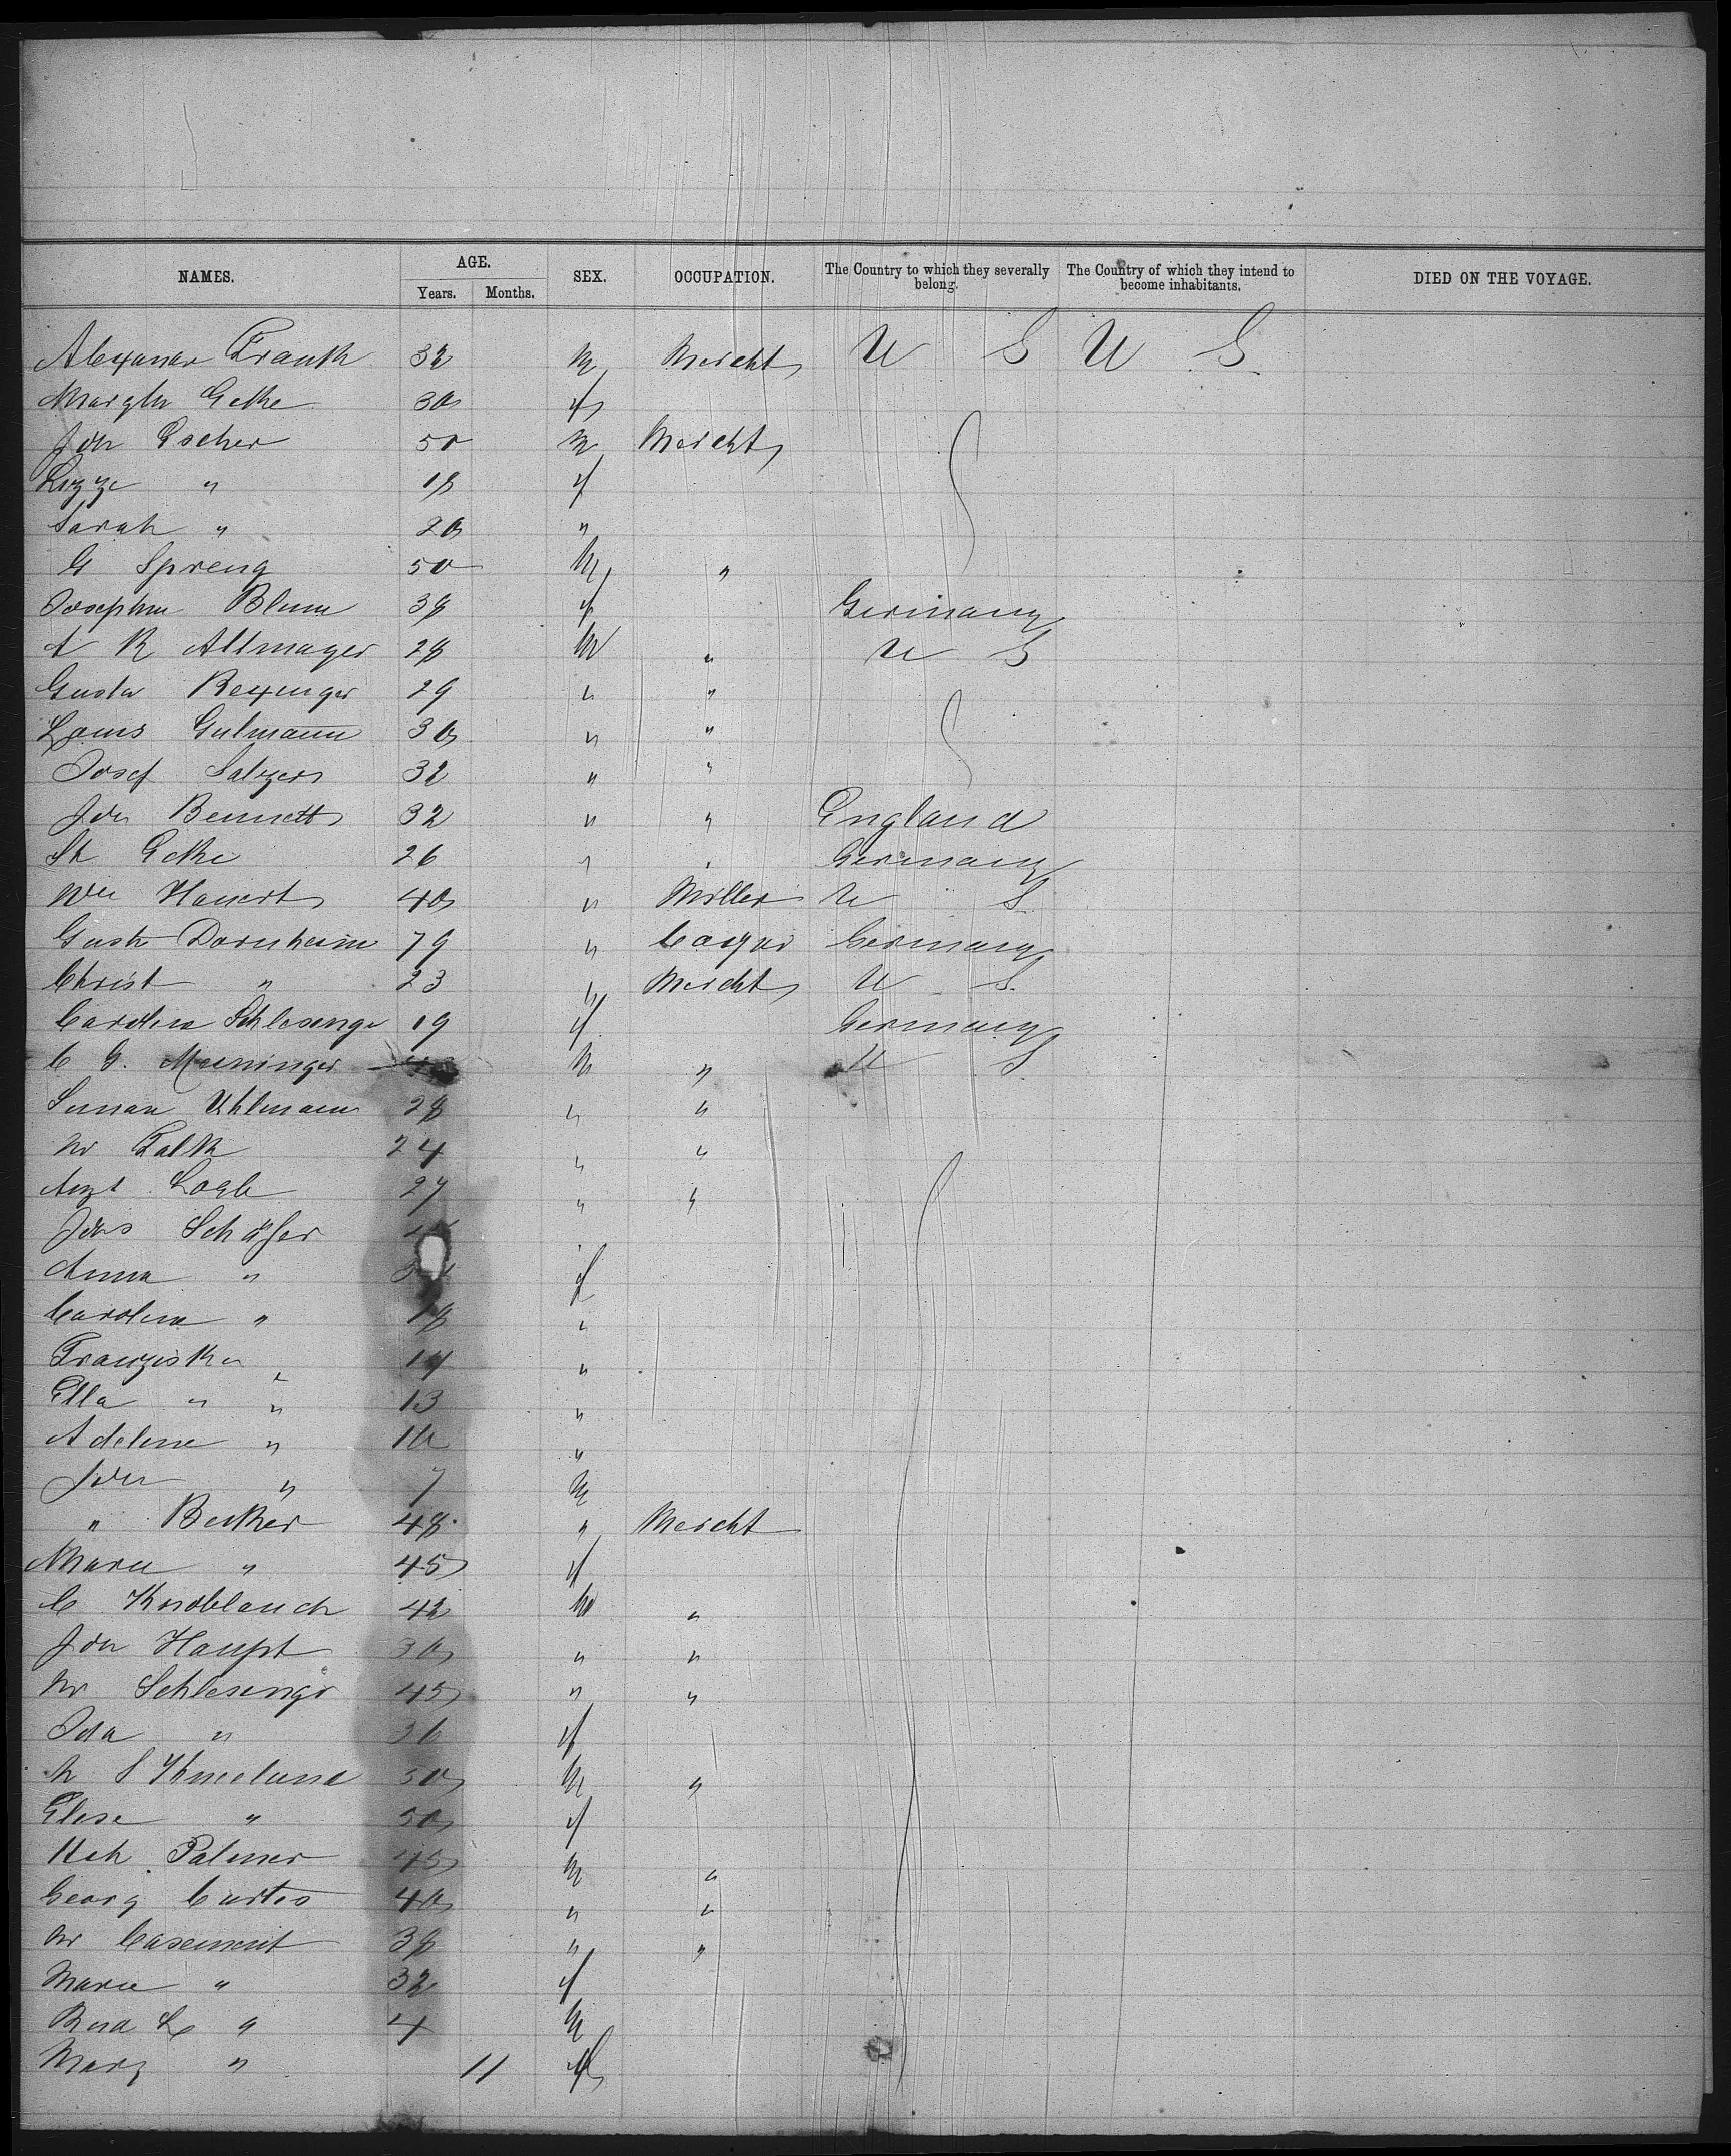 NAMES. AGE. SEX. OCCUPATION. The Country to which they severally belong. The Country of which they intend to become inhabitants. DIED ON THE VOYAGE.
Years. Months.
Frank 32 m Mercht U S U S
Gethe 30 f
Joh Escher 50 m Mercht
Lizze " 18 f
Sarah " 20 "
G Spreng 50 m "
Josephine Blum 38 f Germany
A R Altmayer 28 m " U S
Gustav 29 " "
Louis Gulmann 30 " "
Josef Salzer 32 " "
Joh Bennett 32 " " England
26 " " Germany
Wm Hauert 40 " Miller U S
Gust Dornheim 79 " Germany
Christ " 23 " Mercht U S
Carolina Schlesinge 19 f Germany
C G. Meininger m " U S
Uhlmann 28 " "
M Falk 24 " "
27 " "
Johs Schäfer
Anna " f
Carolina " 18 "
Franziska " 14 "
Ella " " 13 "
Adeline " 10 "
Joh " 7 m
" Becker 48 " Mercht
Marie " 45 f
C Knoblauch 42 m "
Joh Haupt 30 " "
M Schlesinger 45 " "
Ida " 36 f
S Kneeland 50 m "
Elise " 50 f
Palmer 45 m "
Georg Curtis 40 " "
M Casement 38 " "
Marie " 32 f
" 4 m
Mary " 11 f